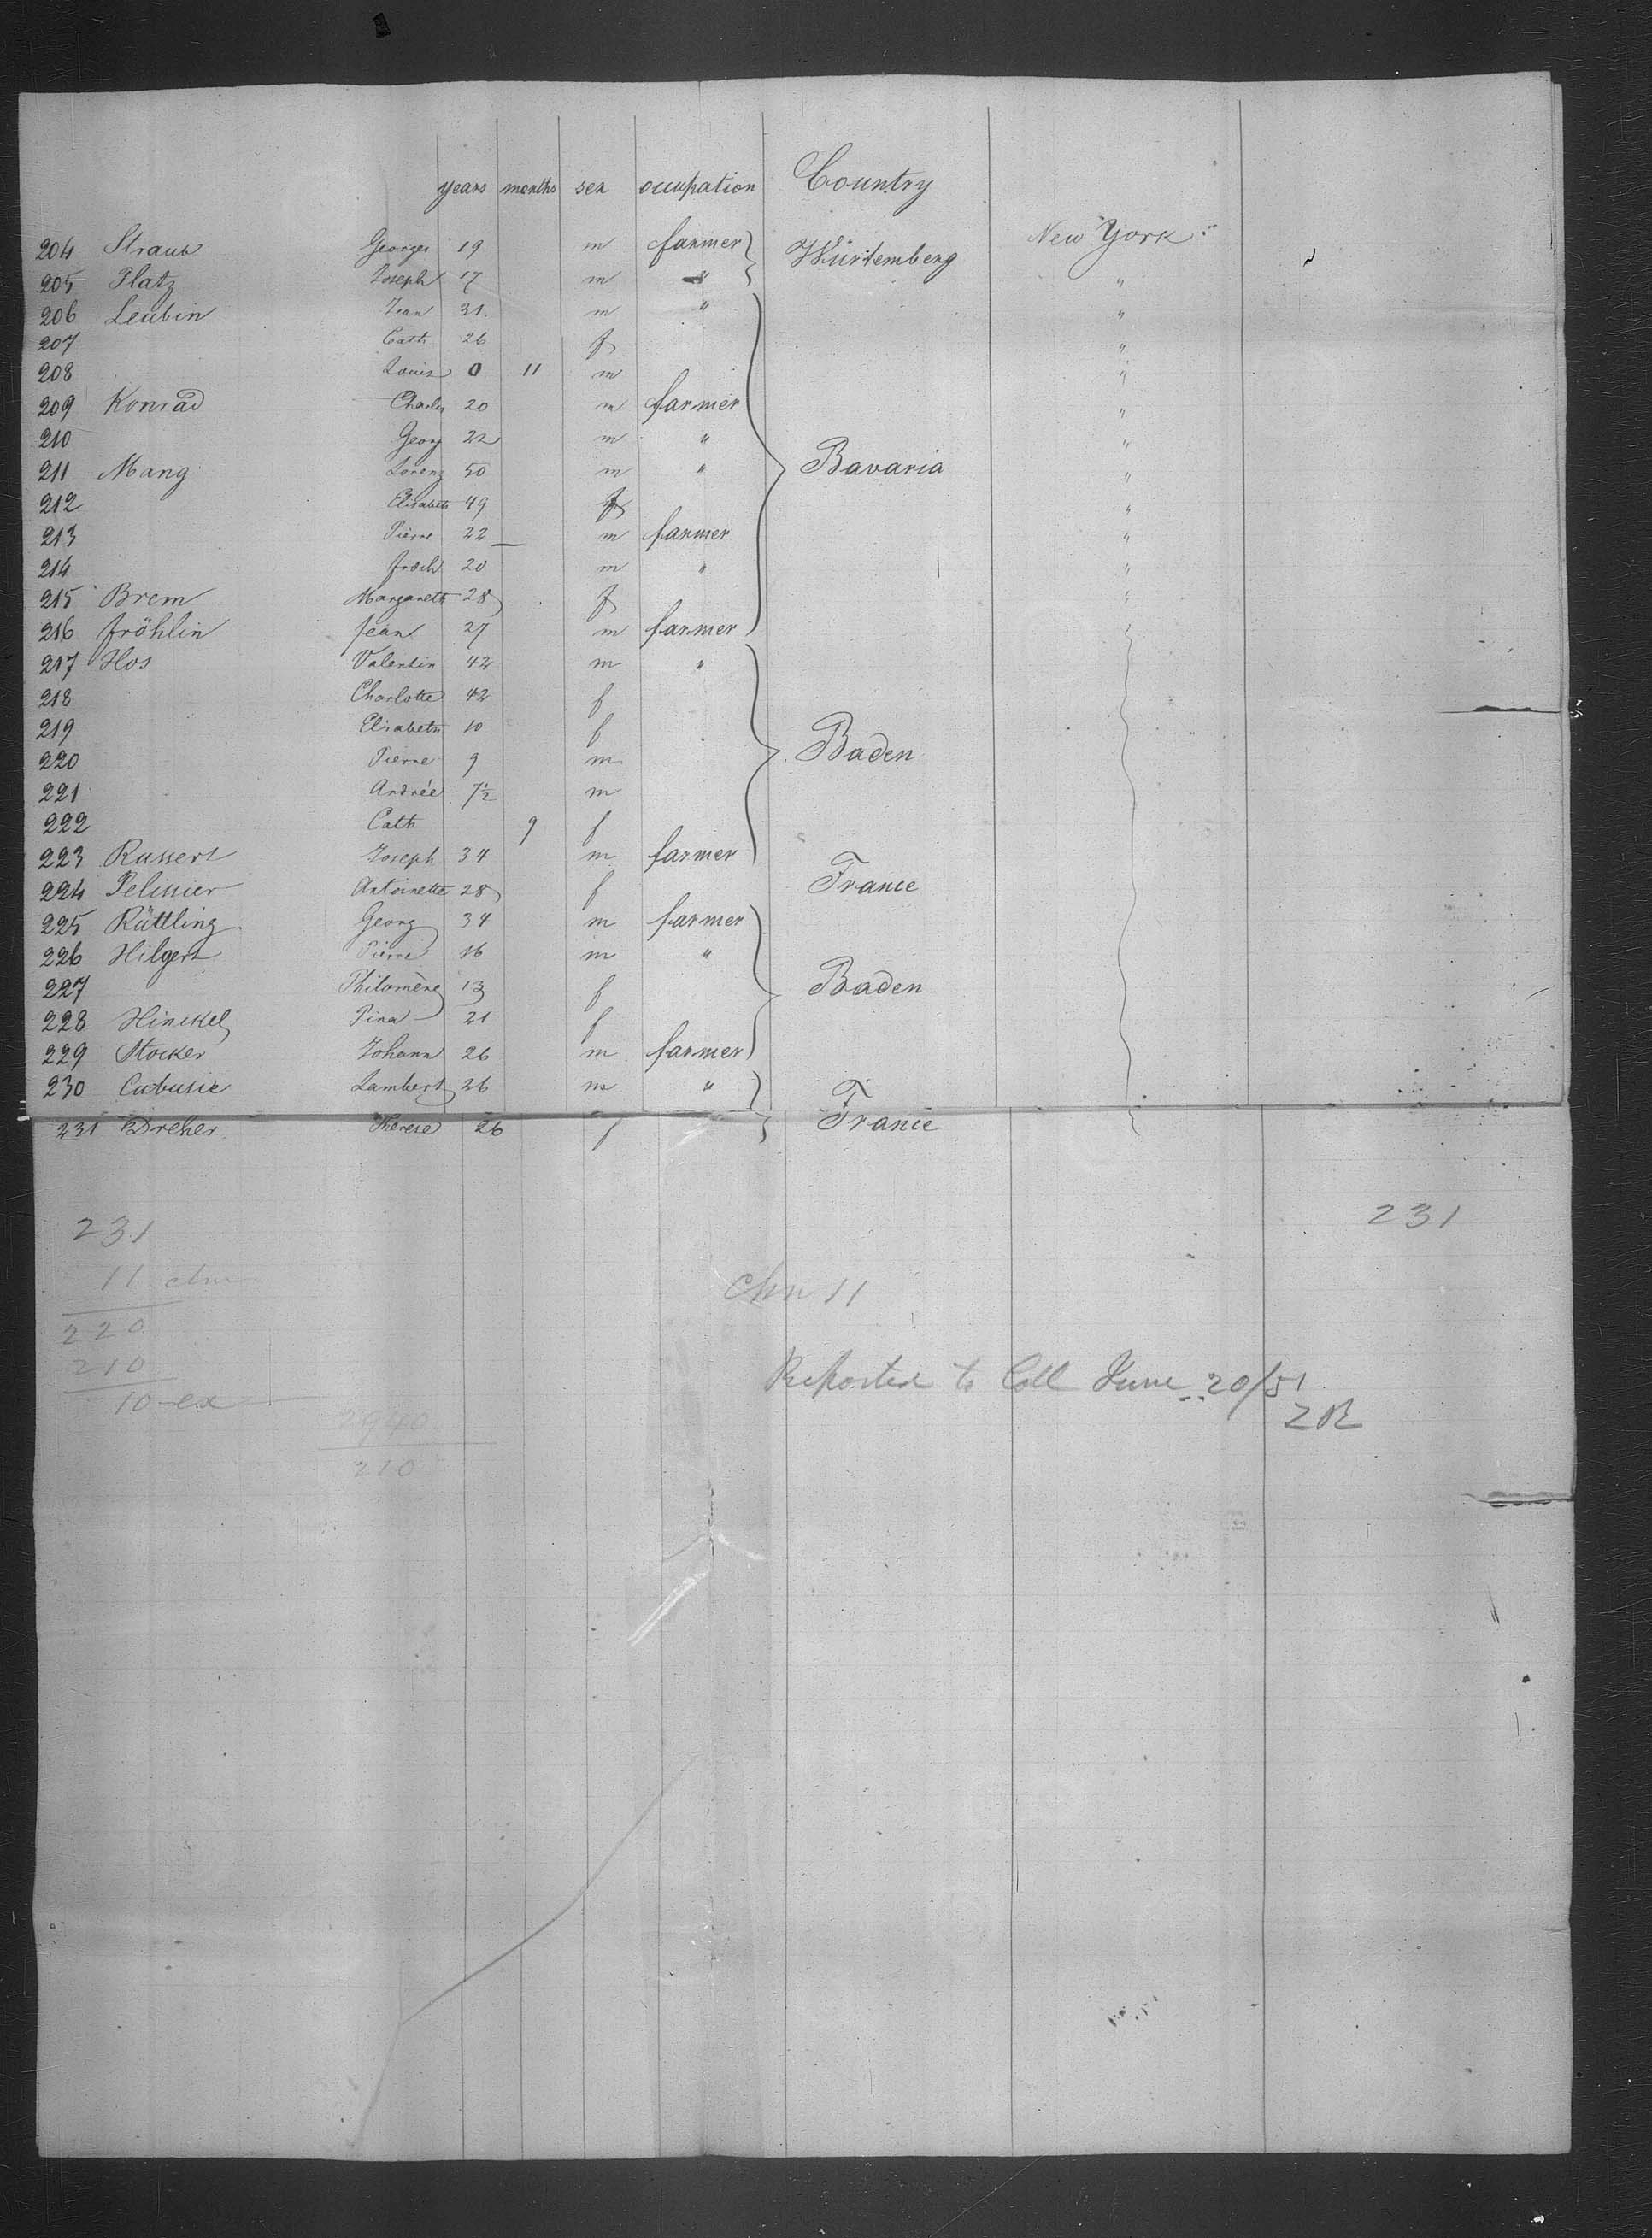 years months sex occupation Country
204 Straub Georges 19 m farmer Würtemberg New York
205 Platz Joseph 17 m " "
206 Leubin Jean 31 m " "
207 Cath 26 f "
208 Louis 0 11 m "
209 Konrad Charles 20 m farmer "
210 Georg 22 m " "
211 Mang Lorenz 50 m " Bavaria "
212 Elisabeth 49 f "
213 Pierre 22 m farmer "
214 20 m " "
215 Brem Margareth 28 f "
216 fröhlin jean 27 m farmer
217 Hos Valentin 42 m "
218 Charlotte 42 f
219 Elisabeth 10 f
220 Pierre 9 m Baden
221 Andrée 7½ m
222 Cath 9 f
223 Russert Joseph 34 m farmer
224 Pelissier Antoinette 28 f France
225 Rüttling Georg 34 m farmer
226 Hilgert Pierre 16 m "
227 Philomène 13 f Baden
228 Hinckel Pina 21 f
229 Stocker Johann 26 m farmer
230 Cubusie Lambert 26 m "
231 Dreher Therese 26 f France
231 231
11 chn
chn 11
220
210
10 ex
Reported to Coll June 20/51
2940
210